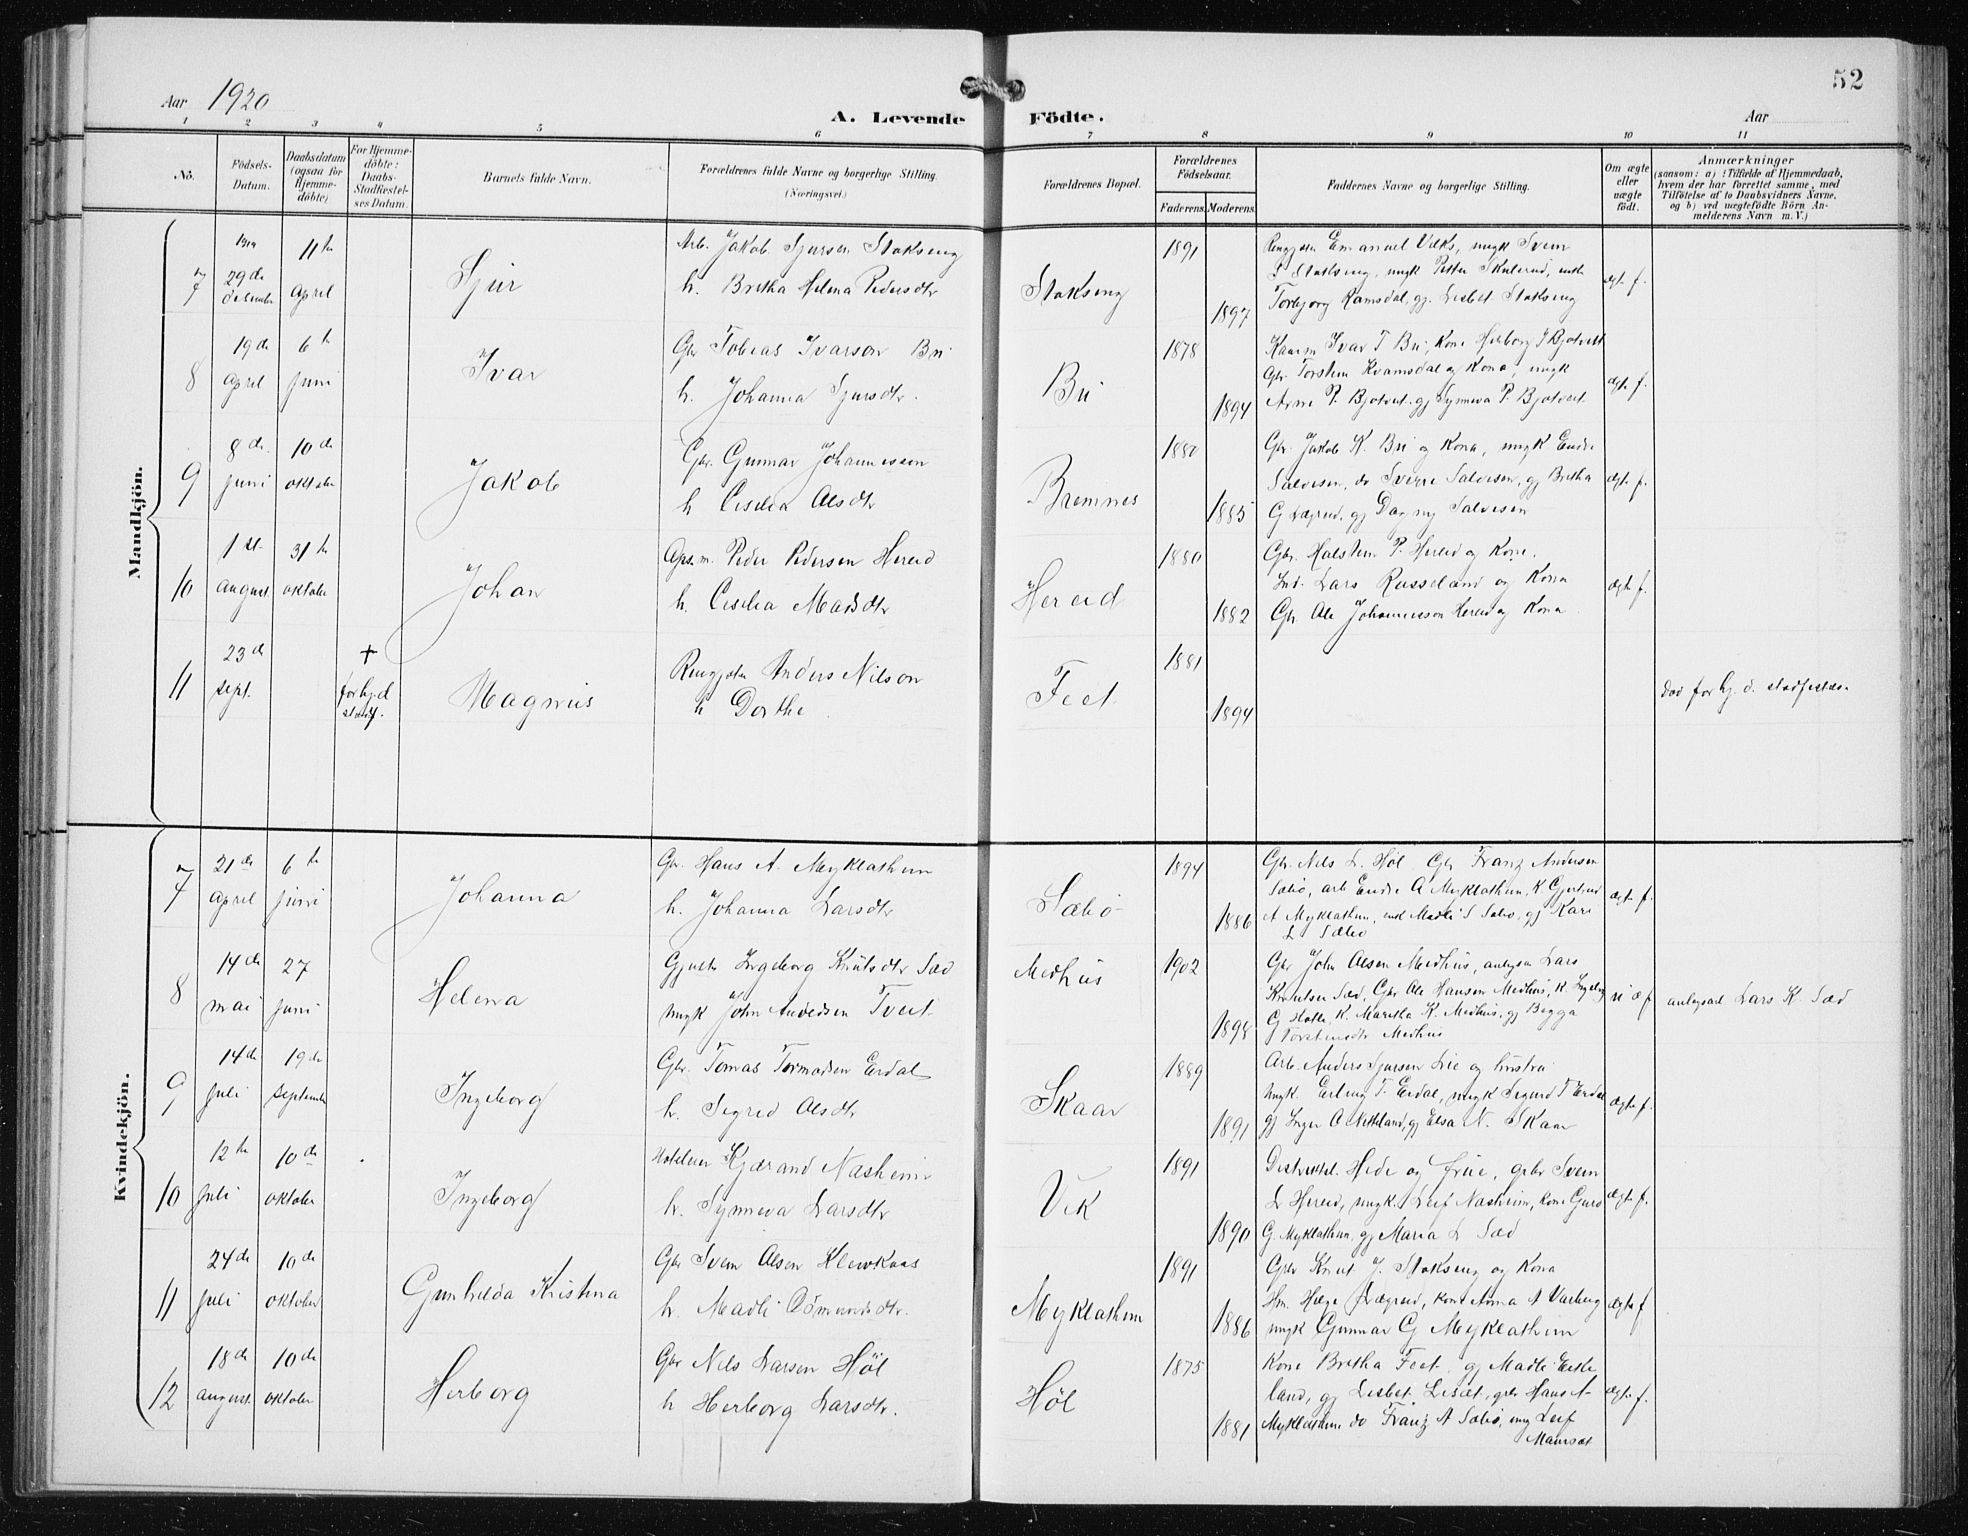 52
Aar 1920
A. Levende Födte.
Aar
1 2 3 4 5 6 7 8 9 10 11
Nö.
Födsels-Datum.
Daabsdatum (ogsaa for Hjemme-döbte)
For Hjemme-döbte: Daabs-Stadfæstel-ses Datum.
Barnets fulde Navn.
Forældrenes fulde Navne og borgerlige Stilling. (Næringsvei.)
Forældrenes Bopæl.
Forældrenes Födselsaar.
Faderens. Moderens.
Faddernes Navne og borgerlige Stilling.
Om ægte eller uægte födt.
Anmærkninger
(saasom: a) i Tilfælde af Hjemmedaab, hvem der har forrettet samme, med Tilföielse af to Daabsvidners Navne, og b) ved uægtefödte Börn An-melderens Navn m. V.)
Mandkjön.
7 1919 29de desember 11te april Sjur
Arb. Jakob Sjursen Stokseng
h. Bretha Helena Pedersdtr
Stokseng 1891 1897
Emanuel Viks, ungk Svein
S Stokseng, ungk Petter Skulerud, enke
Torbjorg Ramsdal, gj. Lisbet Stokseng
ægte f.
8 19de april 6te juni Ivar
Gbr Tobias Ivarson Bu
h. Johanna Sjursdtr.
Bu 1878 1894
Kaarm Ivar T Bu, Kone Herborg J Bjotveit
Gbr Torstein Kvamsdal og Kona, ungk
Arne P. Bjotveit gj Synneva P. Bjotveit
ægte f.
9 8de juni 10de oktober Jakob
Gbr. Gunnar Johannesson
h Cecilia Olsdtr
Bremnes 1880 1885
Gbr. Jakob K. Bu og Kona, ungk Endre
Salvesen, do Sverre Salvesen, gj Bretha
G Lægreid, gj Dagny Salvesen
ægte f.
10 1ste august 31te oktober Johan
Peder Pedersen Hereid
h. Cecilia Madsdtr
Hereid 1880 1882
Gbr. Halstein P. Hereid og Kone.
Ind. Lars Russeland og Kona
Gbr. Ole Johannesson Hereid og Kona
ægte f.
11 23de sept. + før hj.d stadf. Magnus
Anders Nilson
h Dorthe
Feet 1881 1894
Død før hj. d. stadfestelsen
Kvindekjön.
7 21de april 6te juni Johanna
Gbr. Hans A. Myklathun
h. Johanna Larsdtr
Sæbø 1894 1886
Gbr. Nils L. Høl Gbr Franz Andersen
Sæbø, arb Endre A Myklathun, K. Gjertrud
A Myklathun, enk Madli S Sæbø, gj Kari
L Sæbø
ægte f.
8 14de mai 27 juni Helena
Gjente Ingeborg Knutsdtr Sæd
ungk John Andersen Tveit
Medhus 1902 1898
Gbr John Olsen Medhus, anlegsa Lars
Knutsen Sæd, Gbr Ole Hansen Medhus, K. Ingeborg
G Hotle K. Maritha K. Medhus, gj Begga
Torsteinsdtr Medhus
u æ f
anlegsarb Lars K. Sæd
9 14de juli 19de september Ingeborg
Gbr. Tomas Tormodsen Erdal
h. Sigrid Olsdtr
Skaar 1889 1891
Arb. Anders Sjursen Lie og hustru
ungk. Erling T. Erdal, ungk Sigurd T Erdal
gj Inger O Nesseland, gj Elsa N. Skaar
ægte f.
10 12te juli 10de oktober Ingeborg
Hoteleier Kjærand Næsheim
h. Synneva Larsdtr
Vik 1891 1890
Distriktsl. Hede og frue, gbr Svein
L Hereid, ungk. Leif Næsheim, kone Gurid
G. Myklathun, gj Maria L Sæd
ægte f.
11 24de juli 10de oktober Gunhilda Kristina
Gbr Svein Olsen Klewkaas
h. Madli Osmundsdtr.
Myklathun 1891 1886
Gbr Knut J. Stokseng og Kona
Hm. Helge Lægreid, kone Anna A Varberg
ungk Gunnar G Myklathun
ægte f
12 18de august 10de oktober Herborg
Gbr Nils Larsen Høl
h Herborg Larsdtr.
Høl 1875 1881
Kone Bretha Feet, gj Madli
land, gj Lisbet Liset, gbr Hans A-
Myklathun do Franz A Sæbø, ung Leif
Maursæt
ægte f.